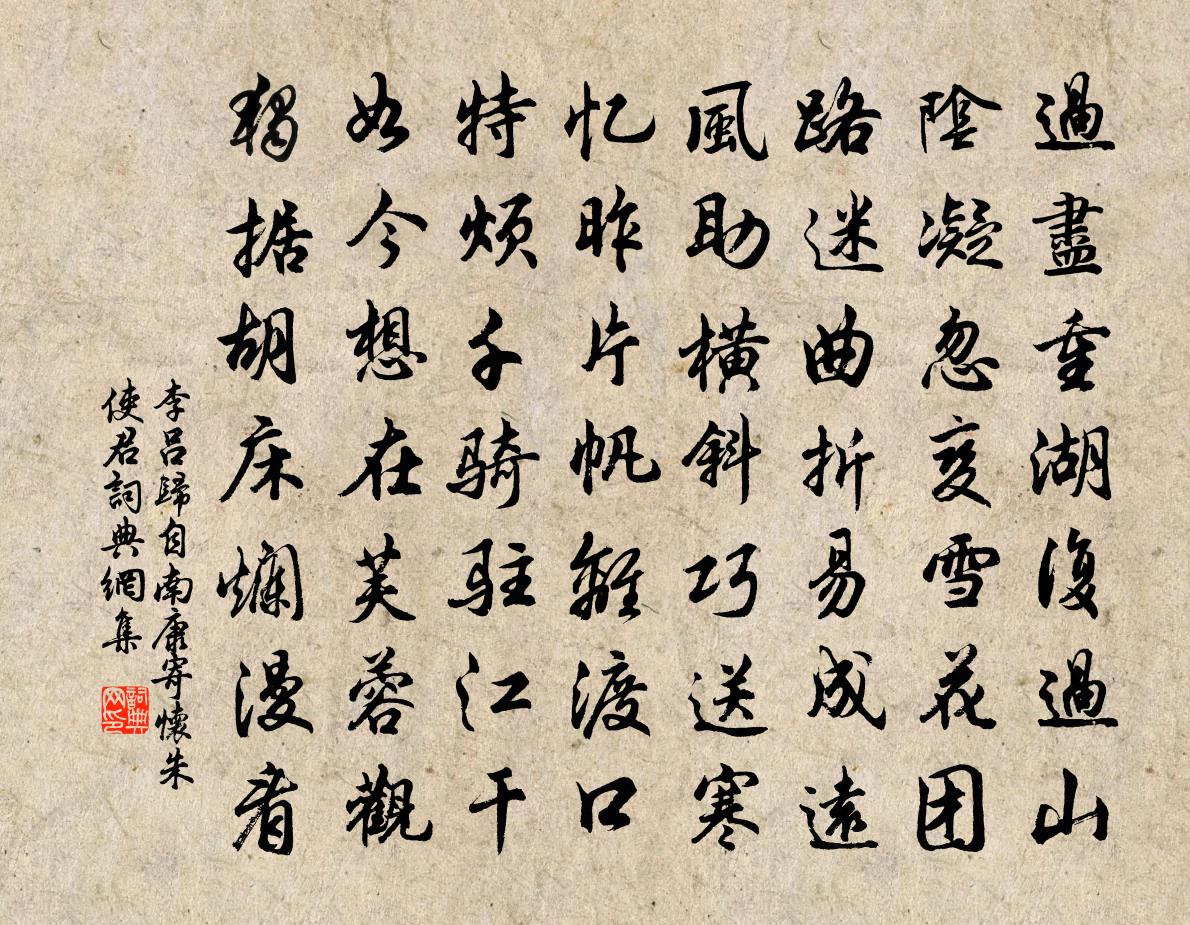 過盡重湖復過山
陰凝忽变雪花团
路迷曲折易成遠
風助橫斜巧送寒
忆昨片帆離渡口
特烦千騎駐江干
如今想在芙蓉觀
獨据胡床爛漫看
李呂歸自南康寄懷朱
使君詞典網集
詞典
网印